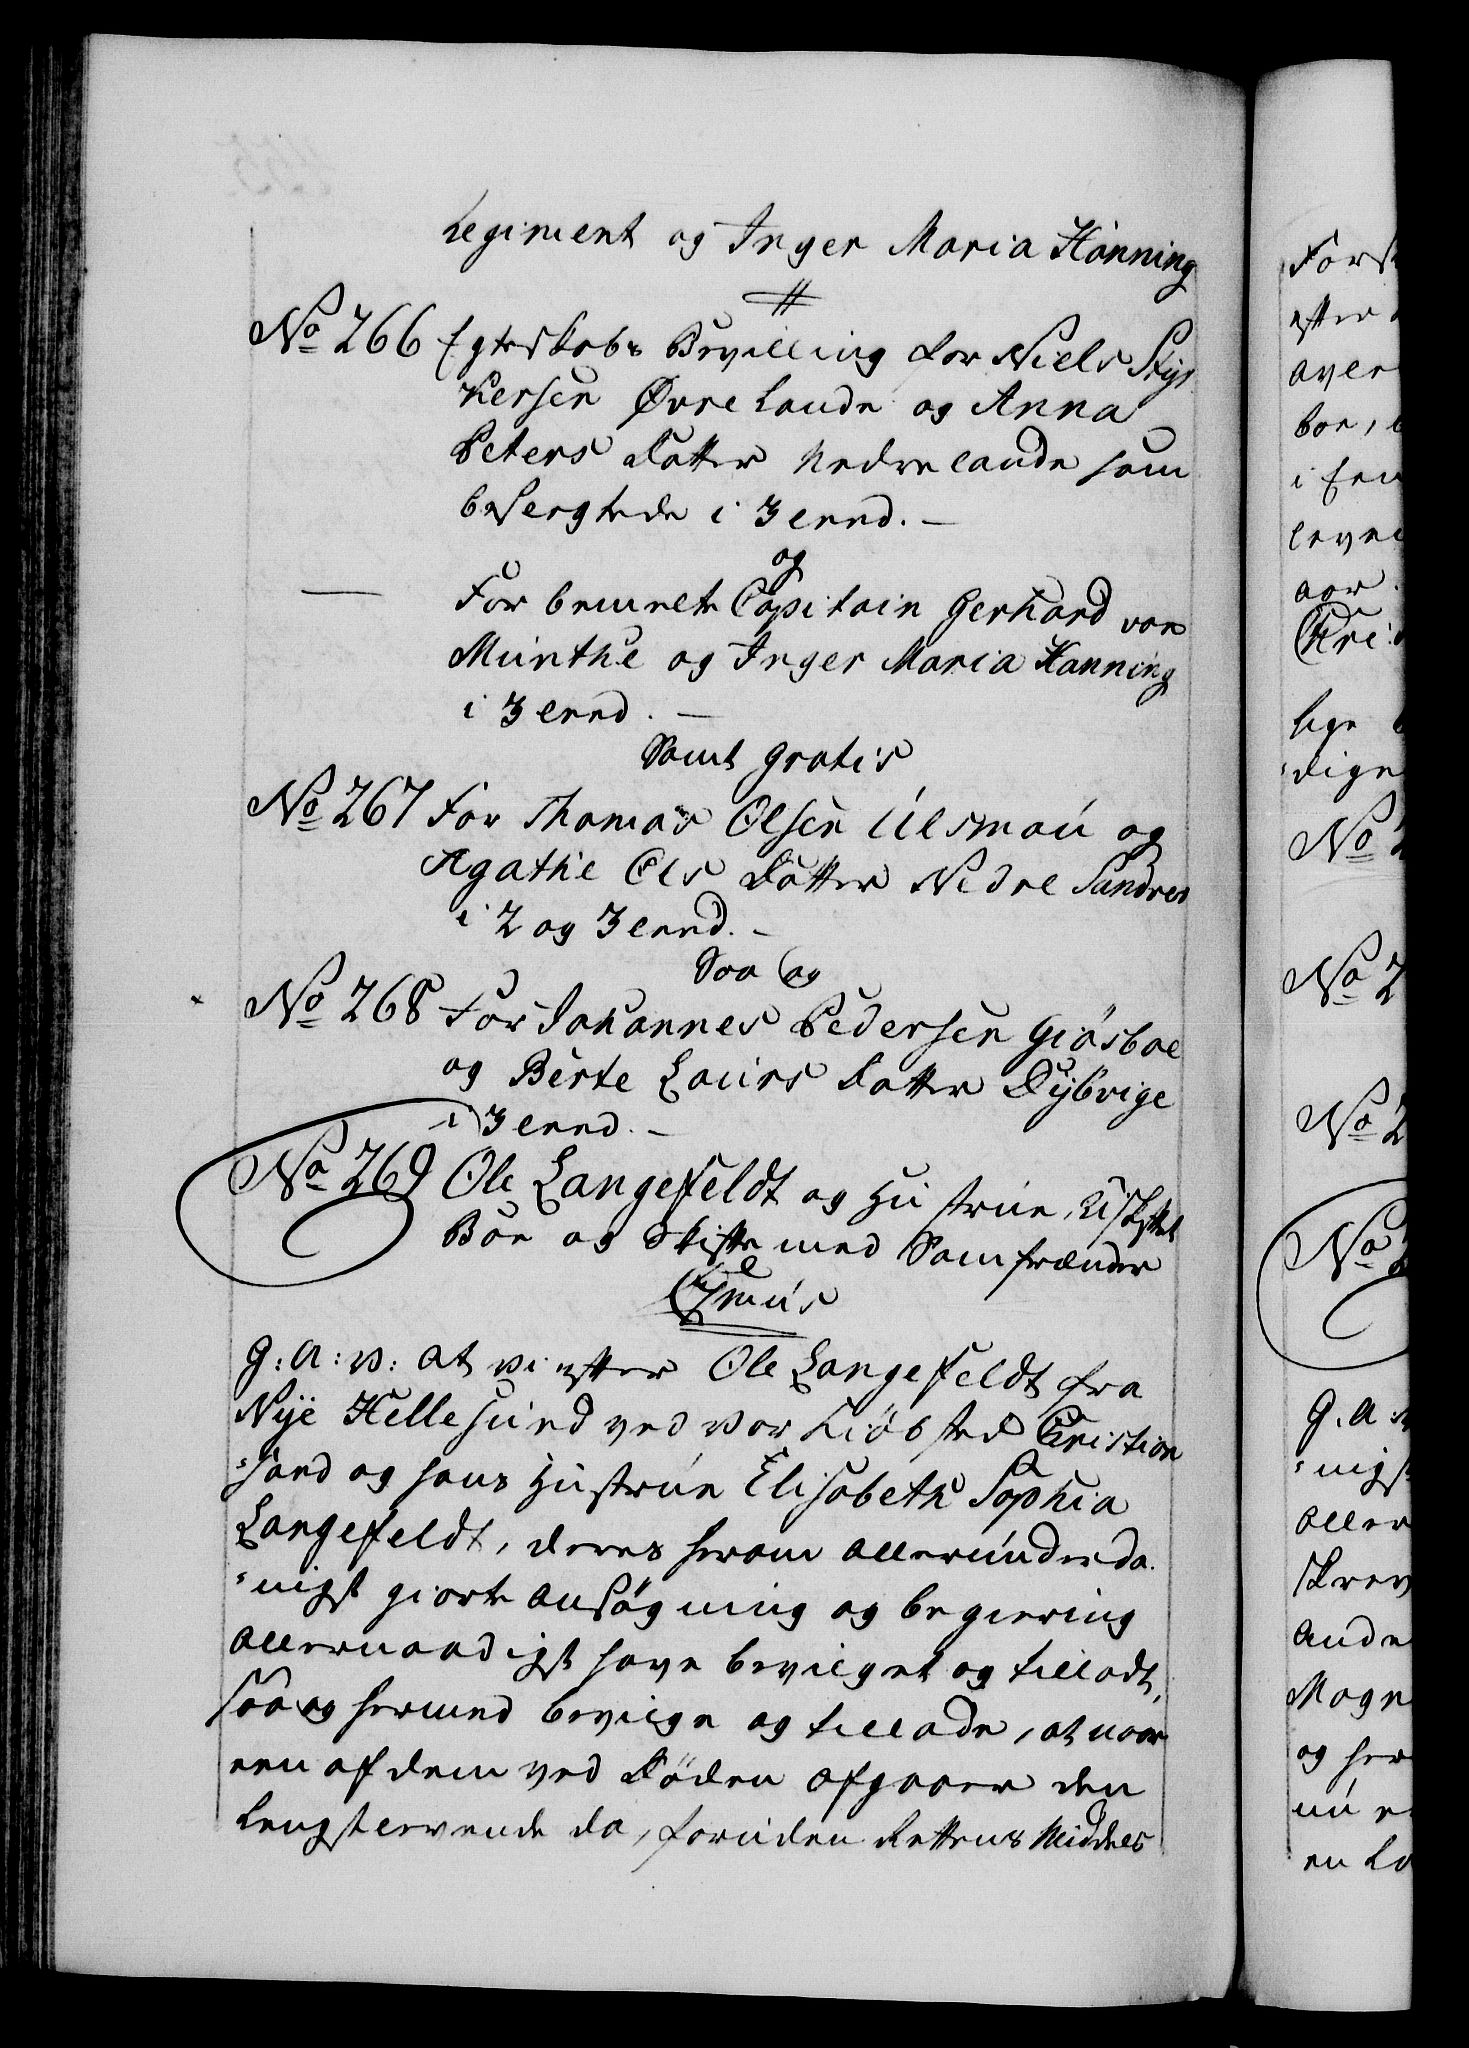 Regiment og Inger Maria Hanning
No 266 Egteskabs Bevilling for Niels Styr
kersen Øvre Lande og Anna
Peters Datter Nedre Lande som
besvergtede i 3 leed.
og
For bemelte Capitain Gerhard von
Münthe og Inger Maria Hanning
i 3 leed.
Samt gratis
No 267 For Thomas Olsen Ulsmau og
Agathe Ols Datter Nedre Sandnes
i 2 og 3 leed.
Saa og
No 268 For Johannes Pedersen Giøsboe
og Berte Laurs Datter Dybvige
i 3 leed.
No 269 Ole Langefeldt og Hustrue, Uskiftet
Boe og Skifte med Samfrænder
G: A: V: at vi efter Ole Langefeldt fra
Nye Hellesund ved vor Kiøbsted Christian
sand og hans Hustrue Elisabeth Sophia
Langefeldt, deres herom allerunderda
nigst giorte Ansøgning og begiering
allernaadigst have bevilget og tilladt,
saa og hermed bevilge og tillade, at naar
een af dem ved Døden afgaaer den
Lengstlevende da, foruden Rettens Middels